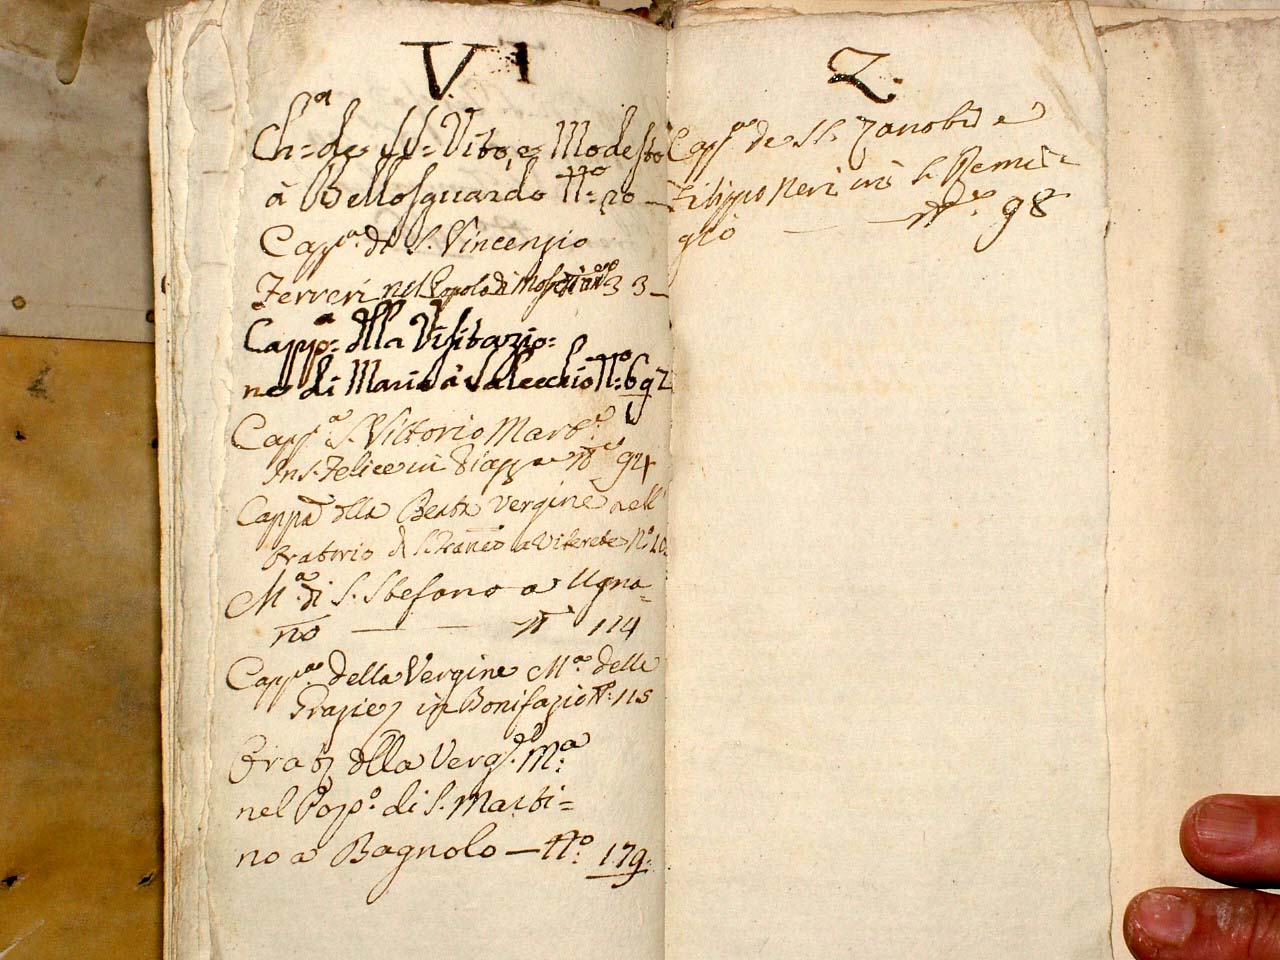 V
Ch.ª de SS. Vito, e Modesto
à Bellosguardo Nº. 20 —
Capp.ª di S. Vincenzio
Ferreri nel Popolo di Nº 33 —
Capp.ª dlla Visitazio=
ne di Maria à Salecchio Nº. 692
Capp.ª S. Vittorio Mart.e
In S. Felice in Piazza Nº 94
Cappª dlla Beata Vergine nell'
Oratorio di S. Franco a Viterete Nº 10
M.ª di S. Stefano a Ugna=
no — — Nº 114
Capp.ª della Vergine M.ª delle
Grazie in Bonifazio Nº. 115
Orat dlla Verg.e M.ª
nel Popº. di S. Marti=
no a Bagnolo — Nº. 179.
Z.
Capp.ª de SS. Zanobi e
Filippo Neri in S. Remi=
gio — — Nº. 98